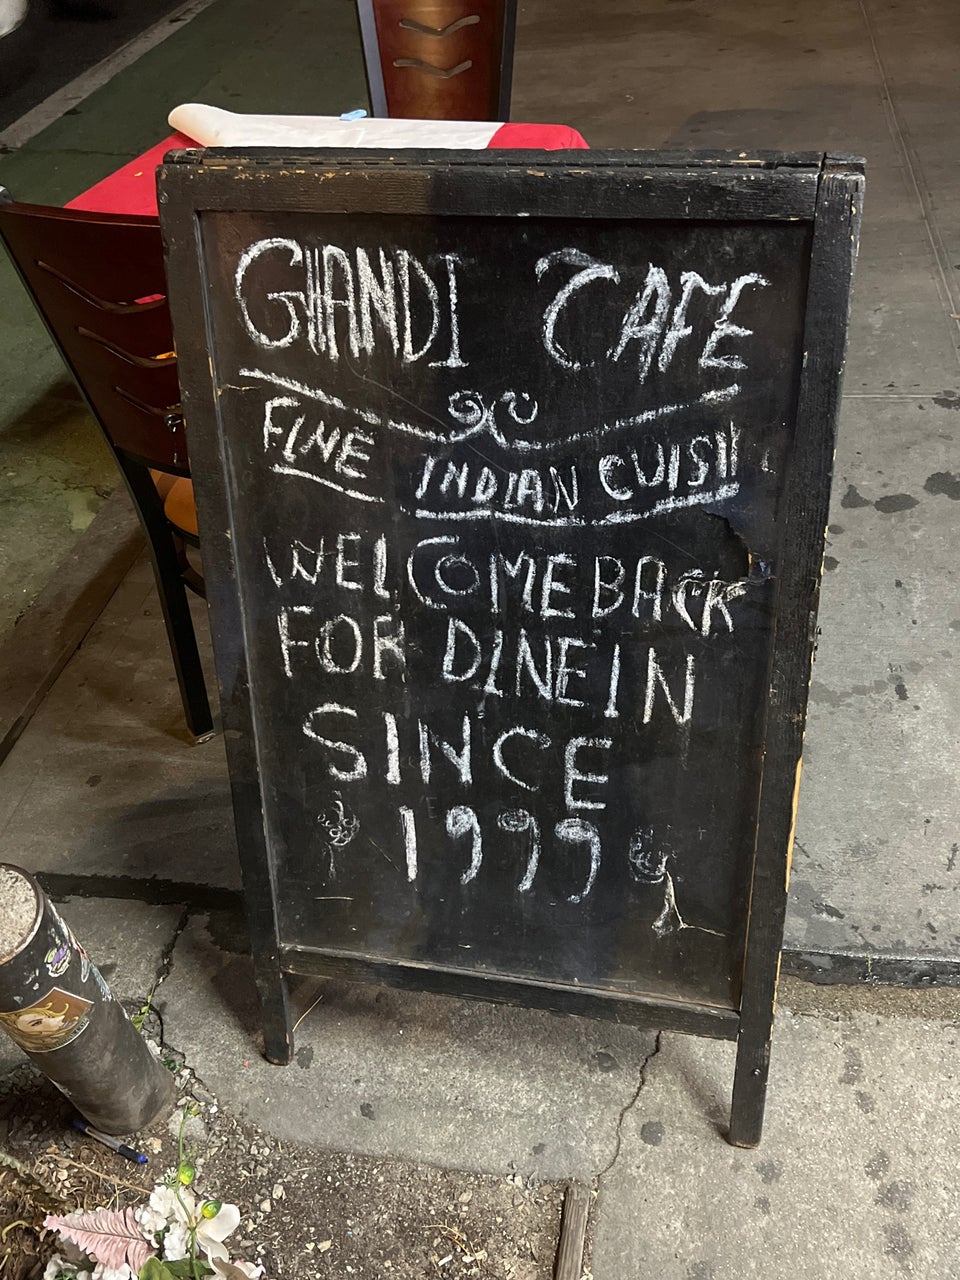 GHANDI CAFE
FINE INDIAN CUISI
WELCOME BACK
FOR DINE IN
SINCE
1999